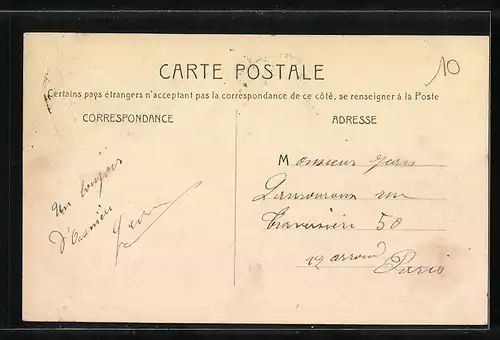 10
CARTE POSTALE
Certains pays étrangers n'acceptant pas la correspondance de ce côté, se renseigner à la Poste
CORRESPONDANCE
ADRESSE
Un bonjour
Monsieur Jean
Lamouroux rue
Traversière 50
12 arrond Paris